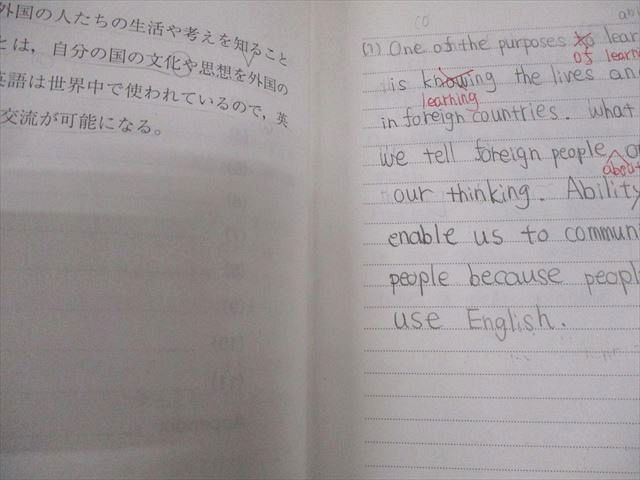 外国の人たちの生活や考えを知ること
とは，自分の国の文化や思想を外国の
英語は世界中で使われているので，英
交流が可能になる。
(7) One of the purposes to lear
of learni
is knowing the lives an
learning
in foreign countries. What
we tell foreign people
about
our thinking. Ability
enable us to commun
people because peopl
use English.